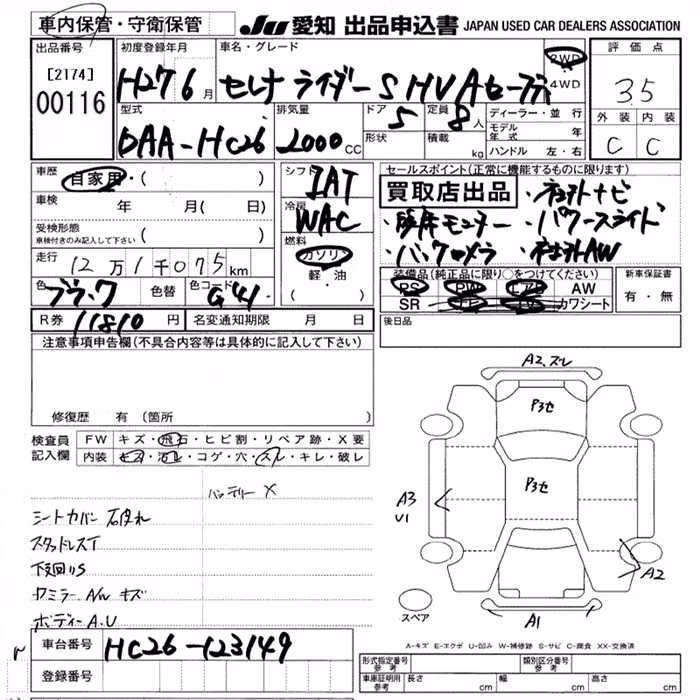 車内保管・守衛保管 JU 愛知 出品申込書 JAPAN USED CAR DEALERS ASSOCIATION
出品番号 初度登録年月 車名・グレード 2WD 評価点
[2174] H27 6月 セレナ ライダーS HV Aセーフティ 4WD 3.5
00116 型式 排気量 ドア 定員 ディーラー・並行 外装 内装
DAA-HC26 2000CC 5 8人 モデル年式 年 C C
形状 積載 kg ハンドル 左・右
車歴 自家用・( ) シフト IAT セールスポイント(正常に機能するものに限ります)
車検 年 月( 日) 冷房 WAC 買取店出品
受検形態 ( ) ・パワースライド
車検付きのみ記入して下さい 燃料 ガソリン
走行 12万1千075km 軽・油 装備品(純正品に限り○をつけてください) 新車保証書
色 ブラック 色替 色コード G41 ( ) PS PW エアB AW 有・無
SR カワシート
R券 11810円 名変通知期限 月 日 後日品
注意事項申告欄(不具合内容等は具体的に記入して下さい)
A2、ズレ
P3セ
修復歴 有 (箇所 )
検査員 FW キズ・飛石・ヒビ割・リペア跡・X要
記入欄 内装 キズ・汚レ・コゲ・穴・スレ・キレ・破レ
P3セ
バッテリー X
A3
U1
シートカバー
スタッドレスT
下回りS
A2
ミラー A/W キズ
スペア
ボディーA.U
A1
車台番号 HC26-123149
A-キズ E-エクボ U-凹み W-補修跡 S-サビ C-腐食 XX-交換済
登録番号
形式指定番号 参考 類別区分番号 参考
車庫証明用 参考 長さ cm 幅 cm 高さ cm